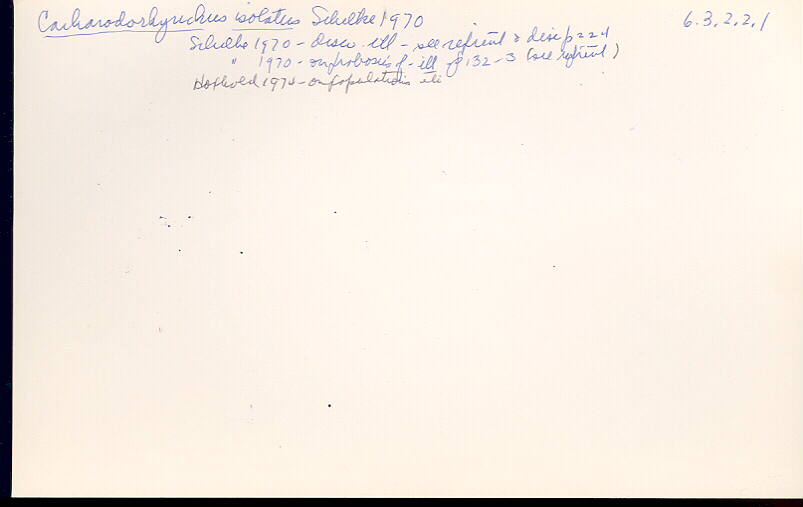 Carcharodorhynchus isolatus Schilke 1970 6.3.2.2.1
Schilke 1970 - descr. ill - see reprint & disc p 224
" 1970 - on proboscis of - ill p 132-3 (see reprint)
Hoxhold 1974 - on populations etc